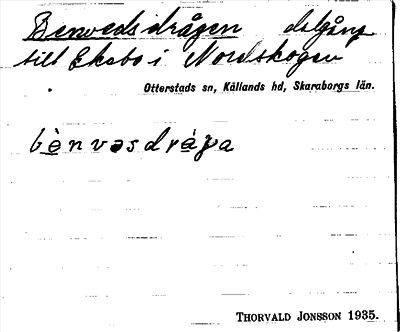 Benvedsdrågen delgång
till Ekebo i Nordskogen
Otterstads sn, Kållands hd, Skaraborgs län.
bènvəsdrágа
THORVALD JONSSON 1935.